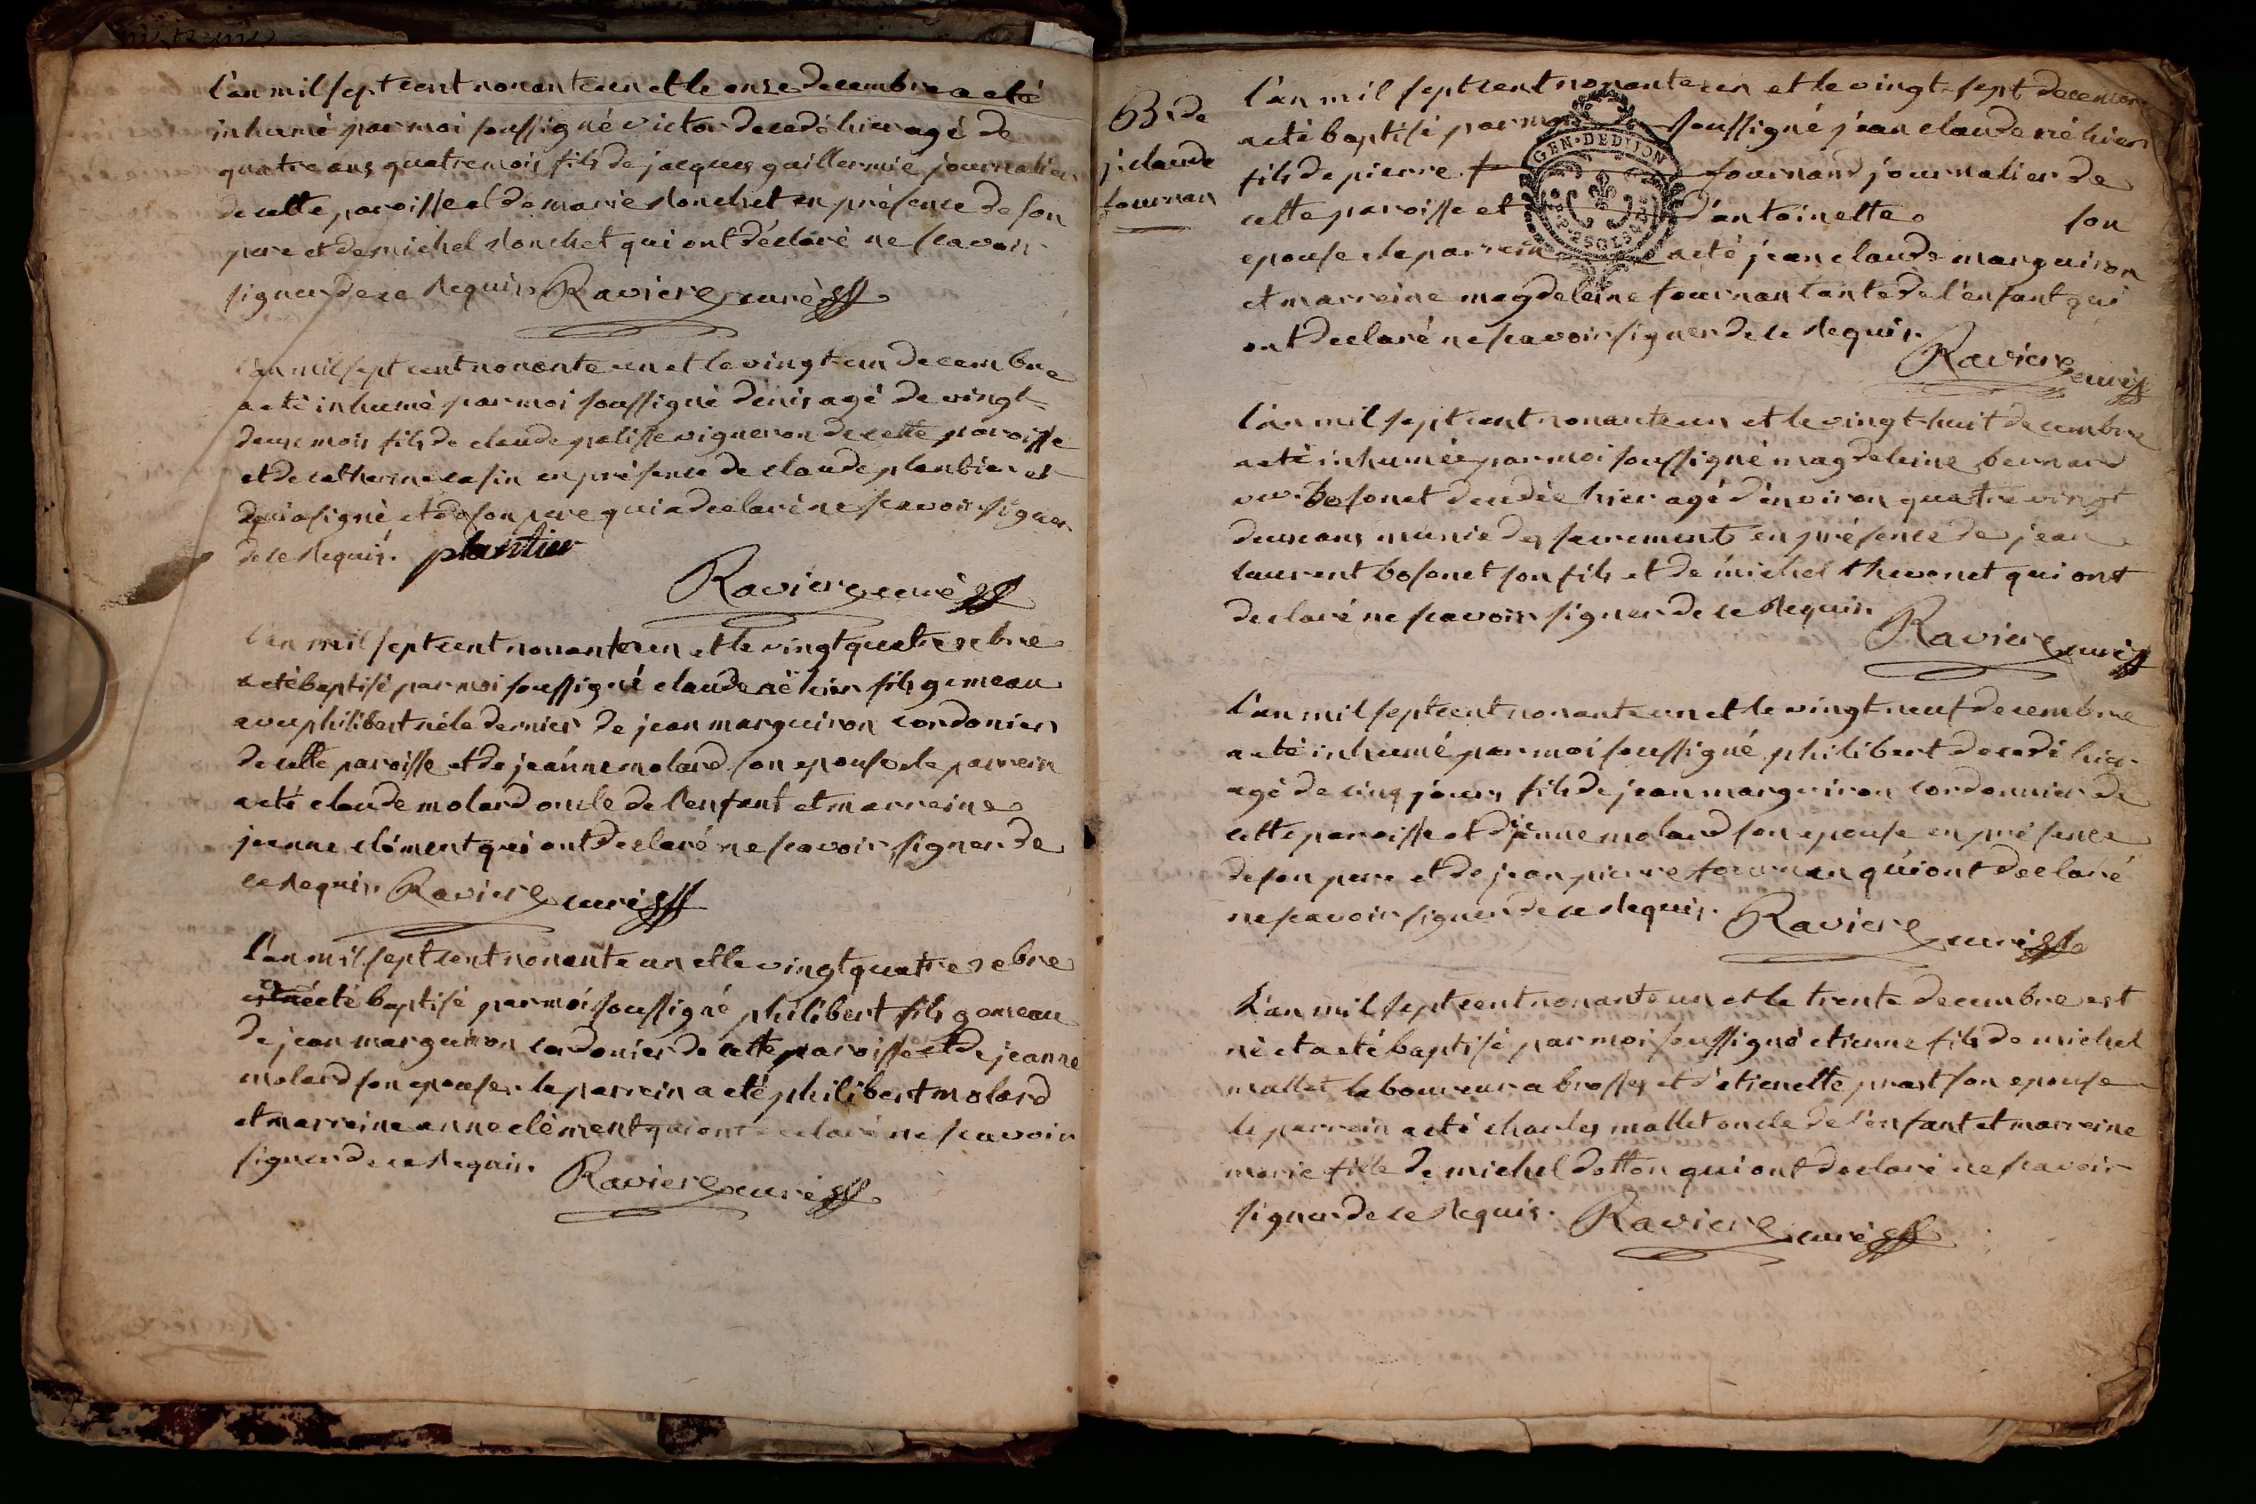 l'an mil sept cent nonante un et le onze decembre a eté
inhumé par moi soussigné victor decedé hier agé de
quatre ans quatre mois fils de jacques guillermie journalier
de cette paroisse et de marie Ronchet en présence de son
pere et de michel Ronchet qui ont déclaré ne scavoir
signer de ce Requis. Raviere curé
l'an mil sept cent nonante un et le vingt-un decembre
a eté inhumé par moi soussigné denis agé de vingt-
deux mois fils de claude palisse vigneron de cette paroisse
et de catherine casin en présence de claude plantier
qui a signé et de son pere qui a declaré ne scavoir signer
de ce Requis. plantier
Raviere curé
l'an mil sept cent nonante un et le vingt quatre xbre
a eté baptisé par moi soussigné claude né hier fils gemeau
avec philibert né le dernier de jean marguiron cordonier
de cette paroisse et de jeanne molard son epouse le parrein
a eté claude molard oncle de l'enfant et marreine
jeanne clément qui ont declaré ne scavoir signer de
ce Requis. Raviere curé
l'an mil sept cent nonante un et le vingt quatre xbre
a eté baptisé par moi soussigné philibert fils gemeau
de jean marguiron cordonier de cette paroisse et de jeanne
molard son epouse. le parrein a eté philibert molard
et marreine anne clément qui ont declaré ne scavoir
signer de ce Requis. Raviere curé
B. de
j. claude
tournan
GEN. DE DIJON
l'an mil sept cent nonante un et le vingt-sept decembre
a eté baptisé par moi soussigné jean claude né hier
fils de pierre tournand journalier de
cette paroisse et d'antoinette son
epouse le parrein a eté jean claude marguiron
et marreine magdeleine tournan tante de l'enfant qui
ont declaré ne scavoir signer de ce Requis.
Raviere curé
l'an mil sept cent nonante un et le vingt-huit decembre
a eté inhumée par moi soussigné magdeleine bernard
vve. bosonet decedée hier agé d'environ quatre vingt
deux ans munie des sacrements en présence de jean
laurent bosonet son fils et de michel thevenet qui ont
declaré ne scavoir signer de ce Requis.
Raviere curé
l'an mil sept cent nonante un et le vingt neuf decembre
a eté inhumé par moi soussigné philibert decedé hier
agé de cinq jours fils de jean marguiron cordonnier de
cette paroisse et de jeanne molard son epouse en présence
de son pere et de jean pierre tournan qui ont declaré
ne scavoir signer de ce Requis. Raviere curé
L'an mil sept cent nonante un et le trente decembre est
né et a eté baptisé par moi soussigné etienne fils de michel
mallet laboureur a brosses et d'etienette prost son epouse
le parrein a eté charles mallet oncle de l'enfant et marreine
marie fille de michel dotton qui ont declaré ne scavoir
signer de ce Requis. Raviere curé